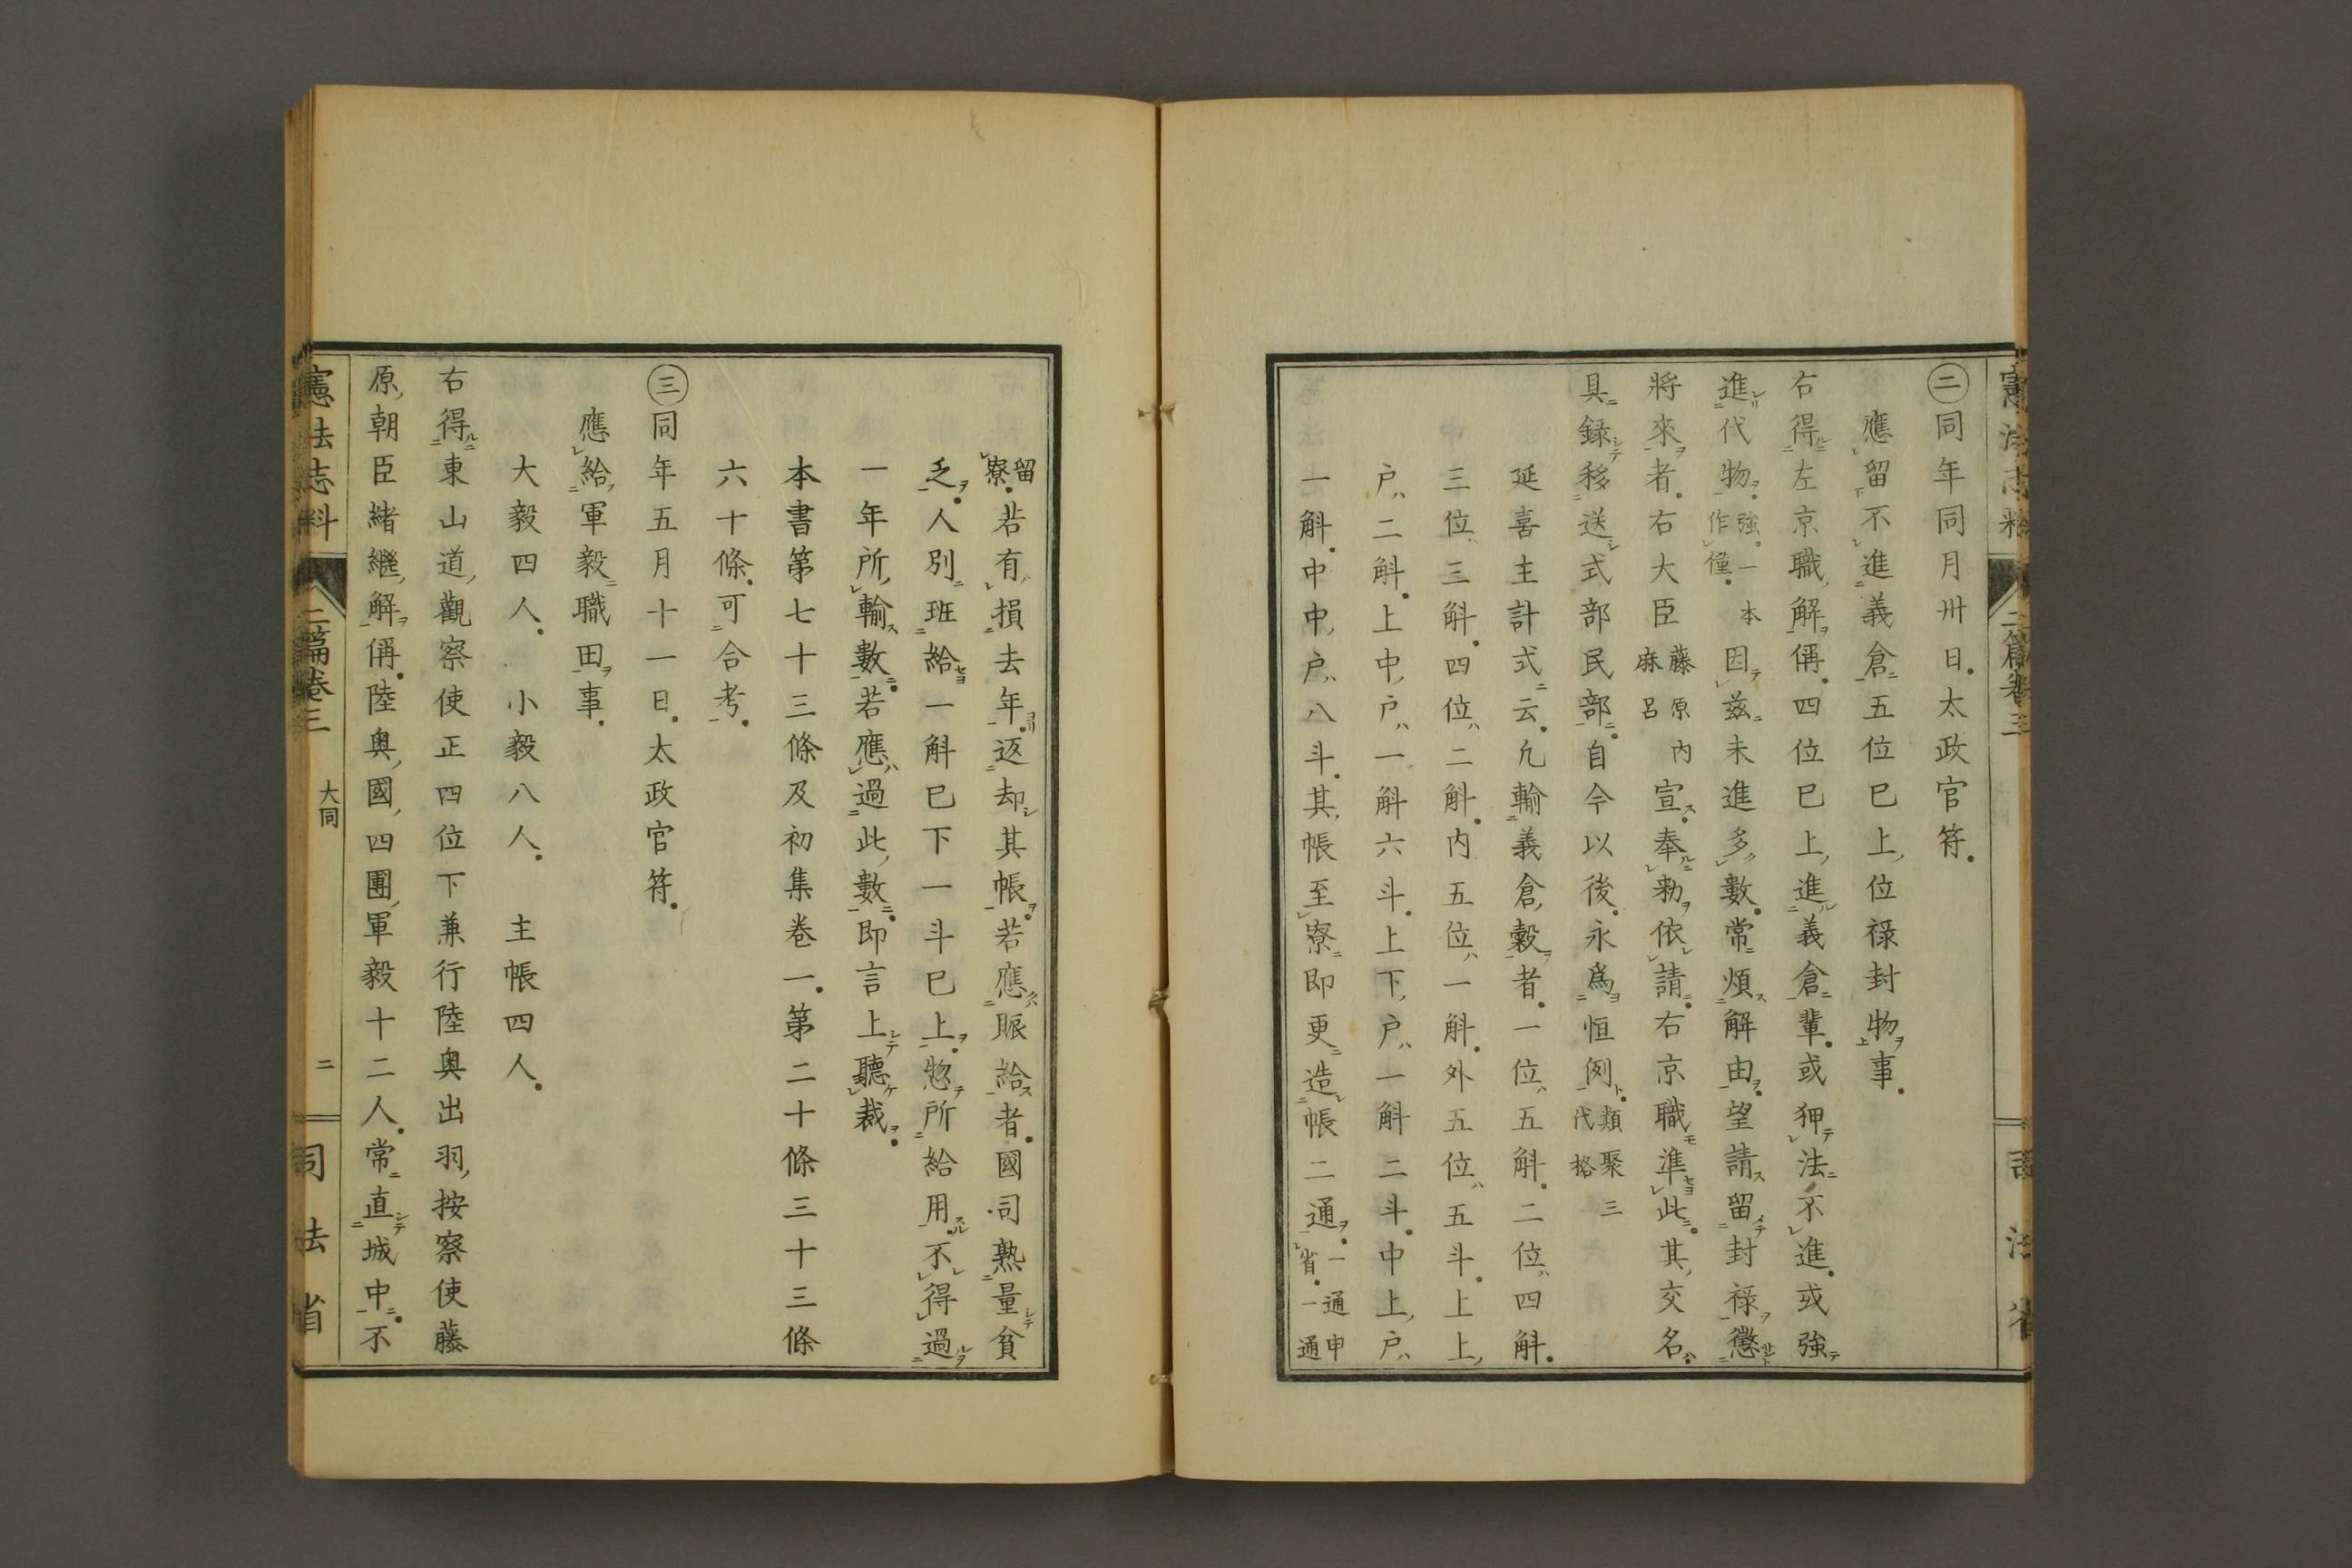 ㊁同年同月卅日。太政官符。
應留不進義倉五位已上位祿封物事。
右得左京職解偁。四位已上進義倉輩。或狎法不進。或強
進代物。強。一本作僮。因茲未進多數。常煩解由。望請留封祿懲
將來者。右大臣藤原内麻呂宣。奉勅依請。右京職準此。其交名
具錄移送式部民部。自今以後。永爲恒例。類聚三代格
延喜主計式云。凡輸義倉穀者。一位五斛。二位四斛。
三位三斛。四位二斛。内五位一斛。外五位五斗。上上
戸二斛。上中戸一斛六斗。上下戸一斛二斗。中上戸
一斛。中中戸八斗。其帳至寮即更造帳二通。一通申省。一通
留寮。若有損去年。返却其帳。若應賑給者。國司熟量貧
乏。人別班給一斛已下一斗已上。惣所給用。不得過
一年所輸數。若應過此數。即言上聽裁。
本書第七十三條及初集卷一。第二十條三十三條
六十條。可合考。
㊂同年五月十一日。太政官符。
應給軍毅職田事。
大毅四人。 小毅八人。 主帳四人。
右得東山道觀察使正四位下兼行陸奥出羽按察使藤
原朝臣緒繼解偁。陸奥國四團軍毅十二人。常直城中。不
憲法志料 二篇卷三 大同 二 司法省